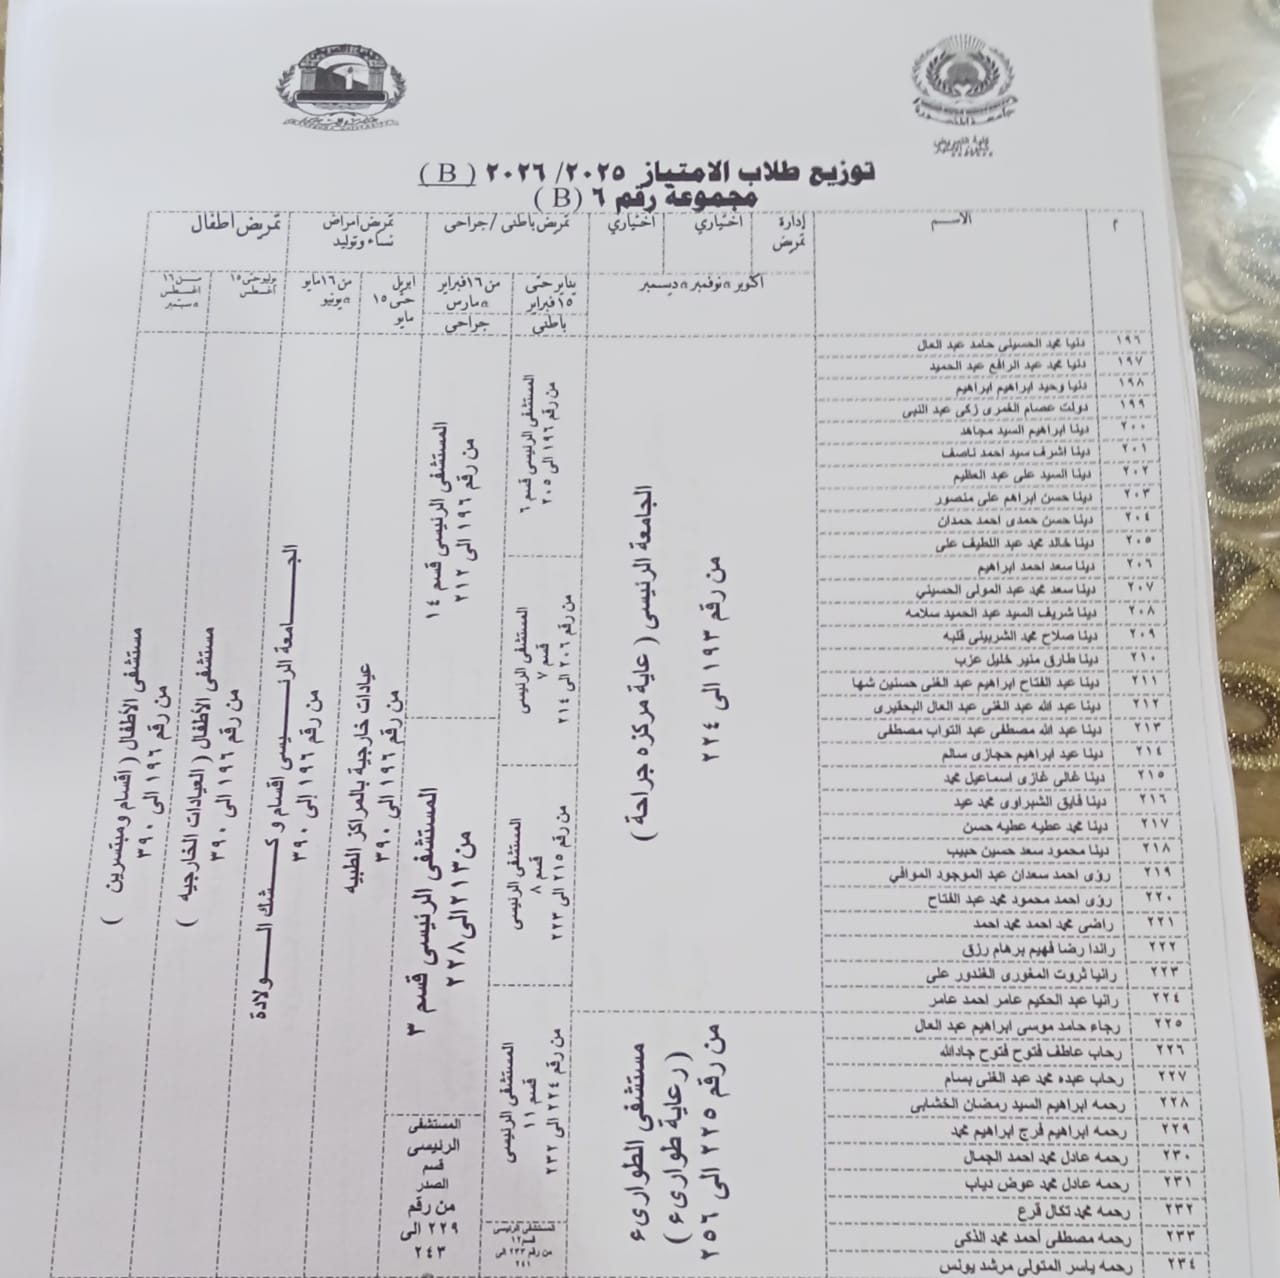 جامعة المنصورة
كلية التمريض
توزيع طلاب الامتياز ٢٠٢٥/ ٢٠٢٦ ( B )
مجموعة رقم ٦ ( B )
م
الاسم
إدارة تمريض
اختياري
اختياري
تمريض باطنى / جراحى
تمريض امراض نساء وتوليد
تمريض اطفال
اكتوبر & نوفمبر & ديسمبر
يناير حتى ١٥ فبراير
باطنى
من ١٦ فبراير & مارس
جراحى
ابريل حتى ١٥ مايو
من ١٦ مايو & يونيو
يوليو حتى ١٥ أغسطس
من ١٦ اغسطس & سبتمبر
١٩٦ دنيا محمد الحسينى حامد عبد العال
١٩٧ دنيا محمد عبد الرافع عبد الحميد
١٩٨ دنيا وحيد ابراهيم ابراهيم
١٩٩ دولت عصام الغمرى زكى عبد النبى
٢٠٠ دينا ابراهيم السيد مجاهد
٢٠١ دينا اشرف سيد احمد ناصف
٢٠٢ دينا السيد على عبد العظيم
٢٠٣ دينا حسن ابراهم على منصور
٢٠٤ دينا حسن حمدى احمد حمدان
٢٠٥ دينا خالد محمد عبد اللطيف على
٢٠٦ دينا سعد احمد ابراهيم
٢٠٧ دينا سعد محمد عبد المولى الحسيني
٢٠٨ دينا شريف السيد عبد الحميد سلامه
٢٠٩ دينا صلاح محمد الشربينى قلبه
٢١٠ دينا طارق منير خليل عزب
٢١١ دينا عبد الفتاح ابراهيم عبد الغنى حسنين شها
٢١٢ دينا عبد الله عبد الغنى عبد العال البحقيرى
٢١٣ دينا عبد الله مصطفى عبد التواب مصطفى
٢١٤ دينا عيد ابراهيم حجازى سالم
٢١٥ دينا غالى غازى اسماعيل محمد
٢١٦ دينا فايق الشبراوى محمد عيد
٢١٧ دينا محمد عطيه عطيه حسن
٢١٨ دينا محمود سعد حسين حبيب
٢١٩ رؤى احمد سعدان عبد الموجود الموافي
٢٢٠ رؤى احمد محمود محمد عبد الفتاح
٢٢١ راضى محمد احمد محمد احمد
٢٢٢ راندا رضا فهيم برهام رزق
٢٢٣ رانيا ثروت المغورى الغندور على
٢٢٤ رانيا عبد الحكيم عامر احمد عامر
٢٢٥ رجاء حامد موسى ابراهيم عبد العال
٢٢٦ رحاب عاطف فتوح فتوح جادالله
٢٢٧ رحاب عبده محمد عبد الغنى بسام
٢٢٨ رحمه ابراهيم السيد رمضان الخشابى
٢٢٩ رحمه ابراهيم فرج ابراهيم محمد
٢٣٠ رحمه عادل محمد احمد الجمال
٢٣١ رحمه عادل محمد عوض دياب
٢٣٢ رحمه محمد تكال قرع
٢٣٣ رحمه مصطفى أحمد محمد الذكى
٢٣٤ رحمه ياسر المتولى مرشد يونس
من رقم ١٩٣ الى ٢٢٤
الجامعة الرئيسى ( عاية مركزه جراحة )
من رقم ٢٢٥ الى ٢٥٦
( رعاية طوارىء )
مستشفى الطوارىء
المستشفى الرئيسى قسم ٦
من رقم ١٩٦ الى ٢٠٥
المستشفى الرئيسى
قسم ٧
من رقم ٢٠٦ الى ٢١٤
المستشفى الرئيسى
قسم ٨
من رقم ٢١٥ الى ٢٢٣
المستشفى الرئيسى
قسم ١١
من رقم ٢٢٤ الى ٢٣٢
المستشفى الرئيسى
قسم ١٢
من رقم ٢٣٣ الى ٢٤١
المستشفى الرئيسى قسم ١٤
من رقم ١٩٦ الى ٢١٢
المستشفى الرئيسى قسم ٣
من ٢١٣ الى ٢٢٨
المستشفى
من رقم
٢٢٩ الى
٢٤٣
عيادات خارجية بالمراكز الطبيه
من رقم ١٩٦ الى ٣٩٠
الجامعة الرئيسى اقسام و كشك الولادة
من رقم ١٩٦ إلى ٣٩٠
مستشفى الأطفال ( العيادات الخارجيه )
من رقم ١٩٦ الى ٣٩٠
مستشفى الأطفال ( اقسام ومبتسرين )
من رقم ١٩٦ الى ٣٩٠